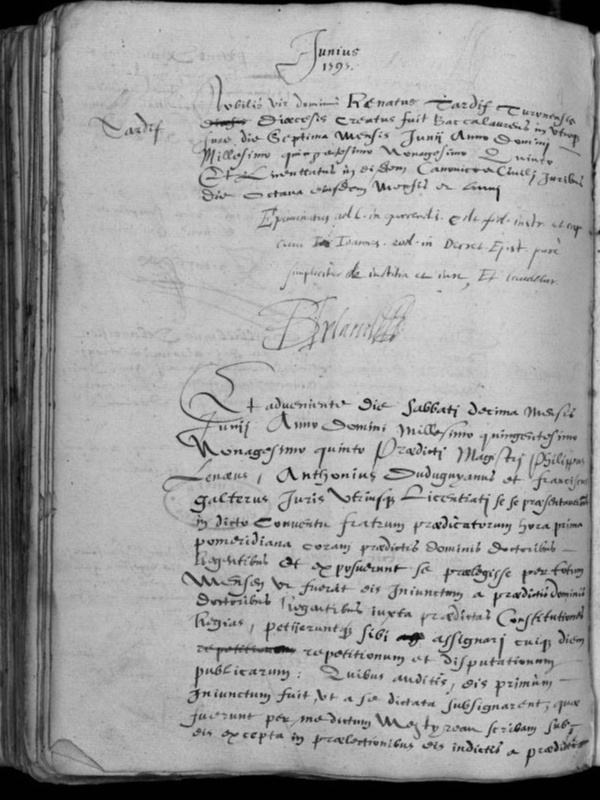 Junius
1595.
Tardif
Nobilis vir dominus Renatus Tardif Turonensis
Diocesis Creatus fuit Baccalaureus in utroq
Jure die Septima Mensis Junij Anno Domini
Millesimo quingentesimo Nonagesimo Quinto
Et Licentiatus in eisdem Canonico et Civili Juribus
die Octava eiusdem Mensis et Anni
Examinatus ad l. in
Joannes. eod. in Decret. Et
simpliciter de iustitia et iure, Et laudetur
Et adveniente die Sabbati decima Mensis
Junij Anno Domini Millesimo quingentesimo
Nonagesimo quinto Prædicti Magistri Philippus
Lenæus, Anthonius Duduguyanus et franciscus
galterus Juris Utriusq Licentiati se se præsentaverunt
in dicto Conventu fratrum prædicatorum hora prima
pomeridiana coram prædictis dominis doctoribus
Regentibus Et exposuerunt se prælegisse per totum
Mensem ut fuerat eis Iniunctum a prædictis dominis
doctoribus Regentibus iuxta prædictas Constitutiones
Regias, petieruntq sibi assignari cuiq diem
repetitionum et disputationum
publicarum: Quibus auditis, eis primum
Iniunctum fuit, ut a se dictata subsignarent, quæ
fuerunt per me dictum scribam sub
eis excepta in prælectionibus eis indictis a prædictis